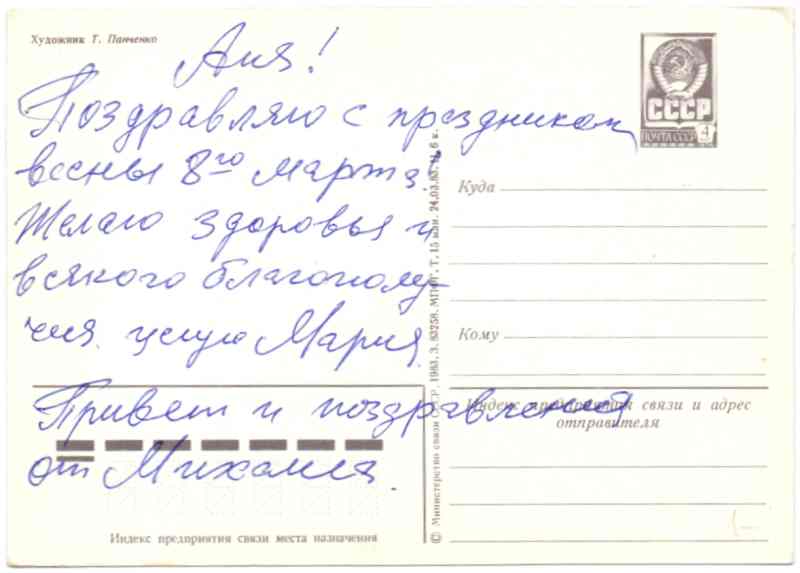 Художник Т. Панченко
Аня!
Поздравляю с праздником
весны 8го марта.
Желаю здоровья и
всякого благополу-
чия. целую Мария.
Привет и поздравления
от Михаила.
Индекс предприятия связи места назначения
© Министерство связи СССР. 1983. З. 83258. МПФГ. Т. 15 млн. 24.03.83. Ц. 6 к.
СССР
ПОЧТА СССР 4
Куда
Кому
Индекс предприятия связи и адрес
отправителя